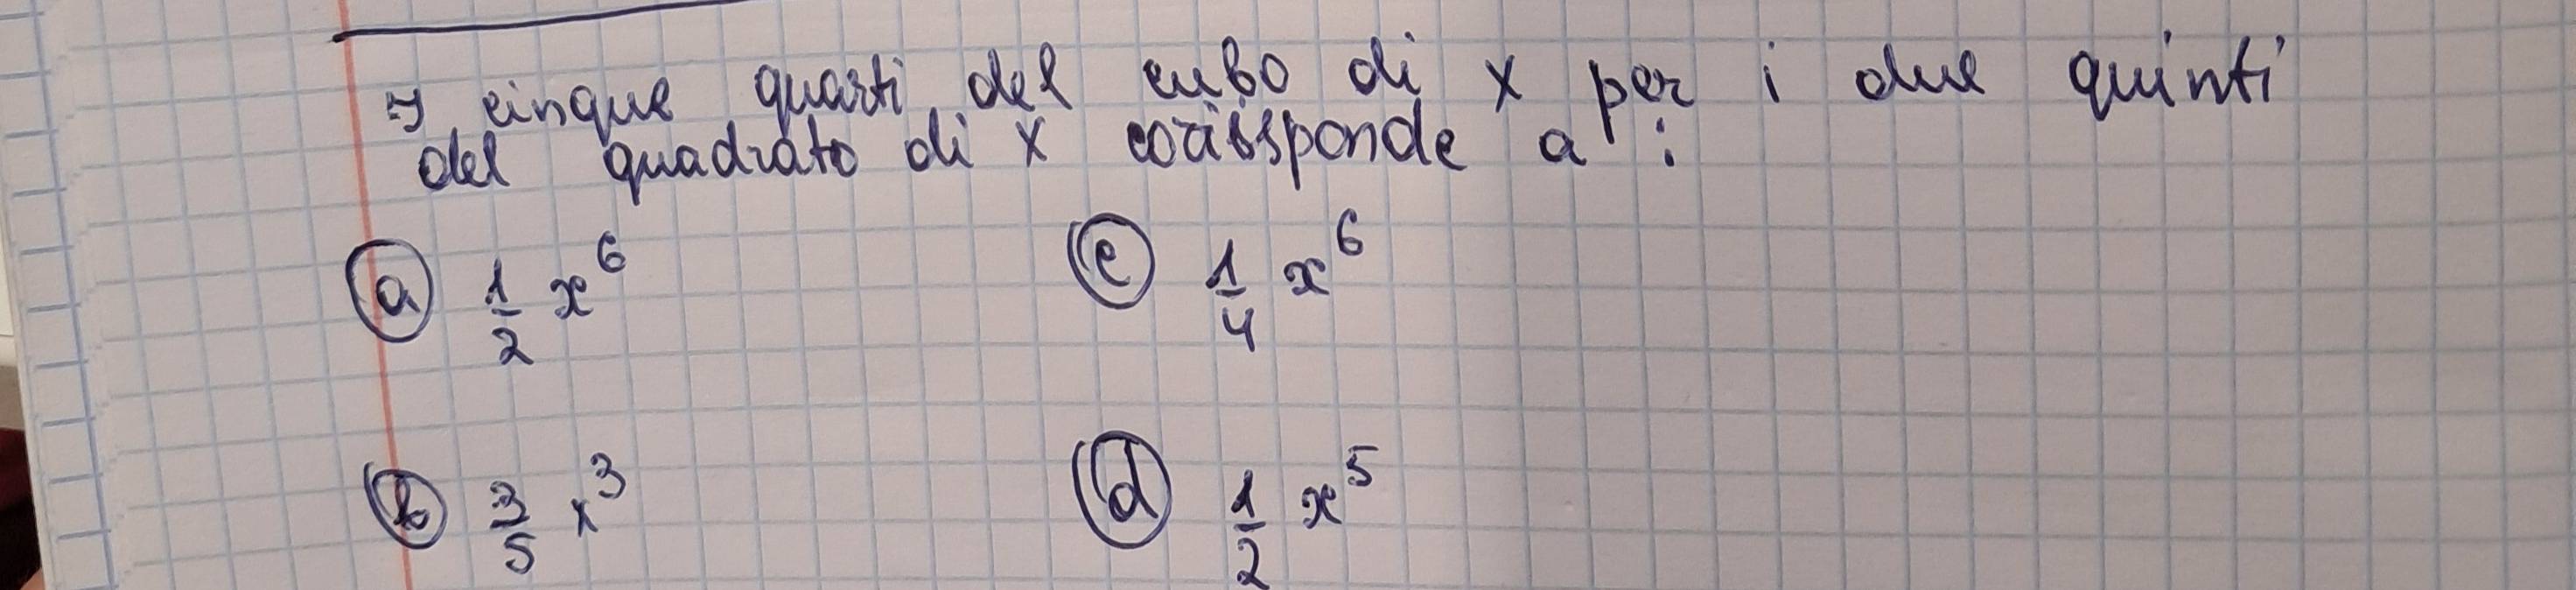 I cinque quarti del cubo di x per i due quinti
del quadrato di x corissponde a :
a 1/2 x^6
c 1/4 x^6
b 3/5 x^3
d 1/2 x^5